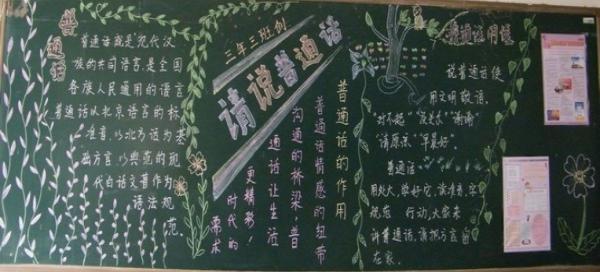 普通话
普通话就是现代汉
族的共同语言,是全国
各族人民通用的语言
普通话以北京语言的标
准音,以北方话为基
础方言,以典范的现
代白话文著作为
语法规
范。
三年三班创
请说普通话
普通话的作用
普通话情感的纽带
沟通的桥梁普
通话让生活
更精彩!
时代的
需求
普通话用语
说普通话使
用文明敬语。
"对不起""没关系""谢谢"
"请原谅""早晨好"。
普通话
用处大,学好它,
行动,大家来
讲普通话,请把方言留
在家。